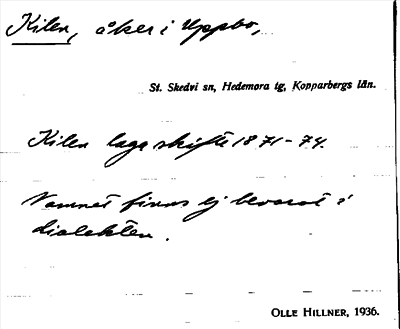 Kilen, åker i Uppbo,
St. Skedvi sn, Hedemora tg, Kopparbergs län.
Kilen laga skifte 1871-74.
Namnet finns ej bevarat i
dialekten.
OLLE HILLNER, 1936.